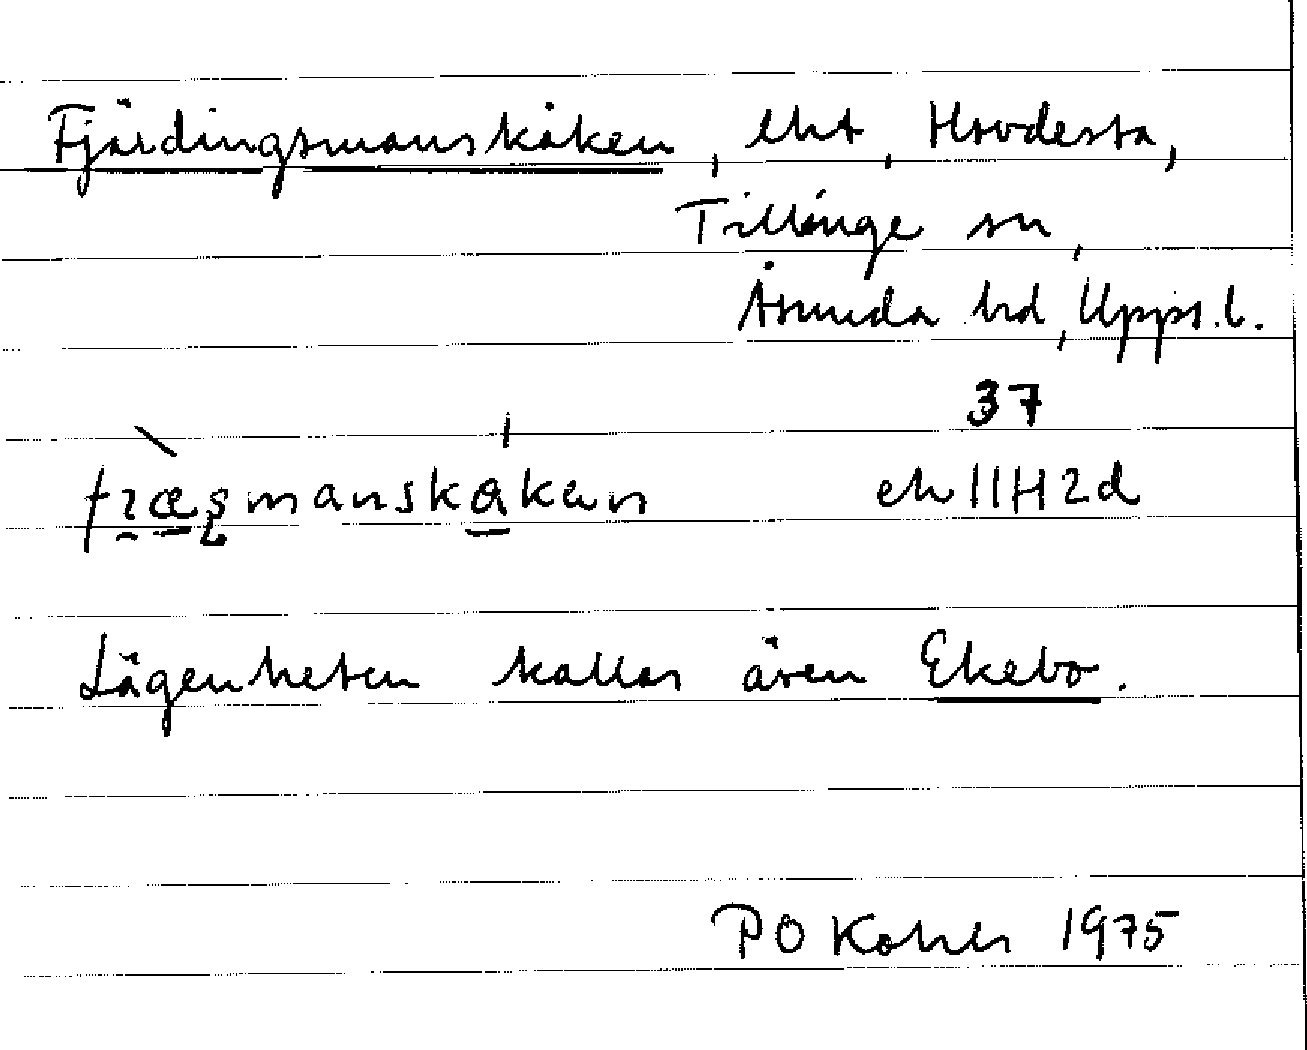 Fjärdingsmanskåken, lht, Hovdesta,
Tillinge sn,
Åsunda hd, Upps. l.
37
ek 11H2d
Lägenheten kallas även Ekebo.
P O 1975